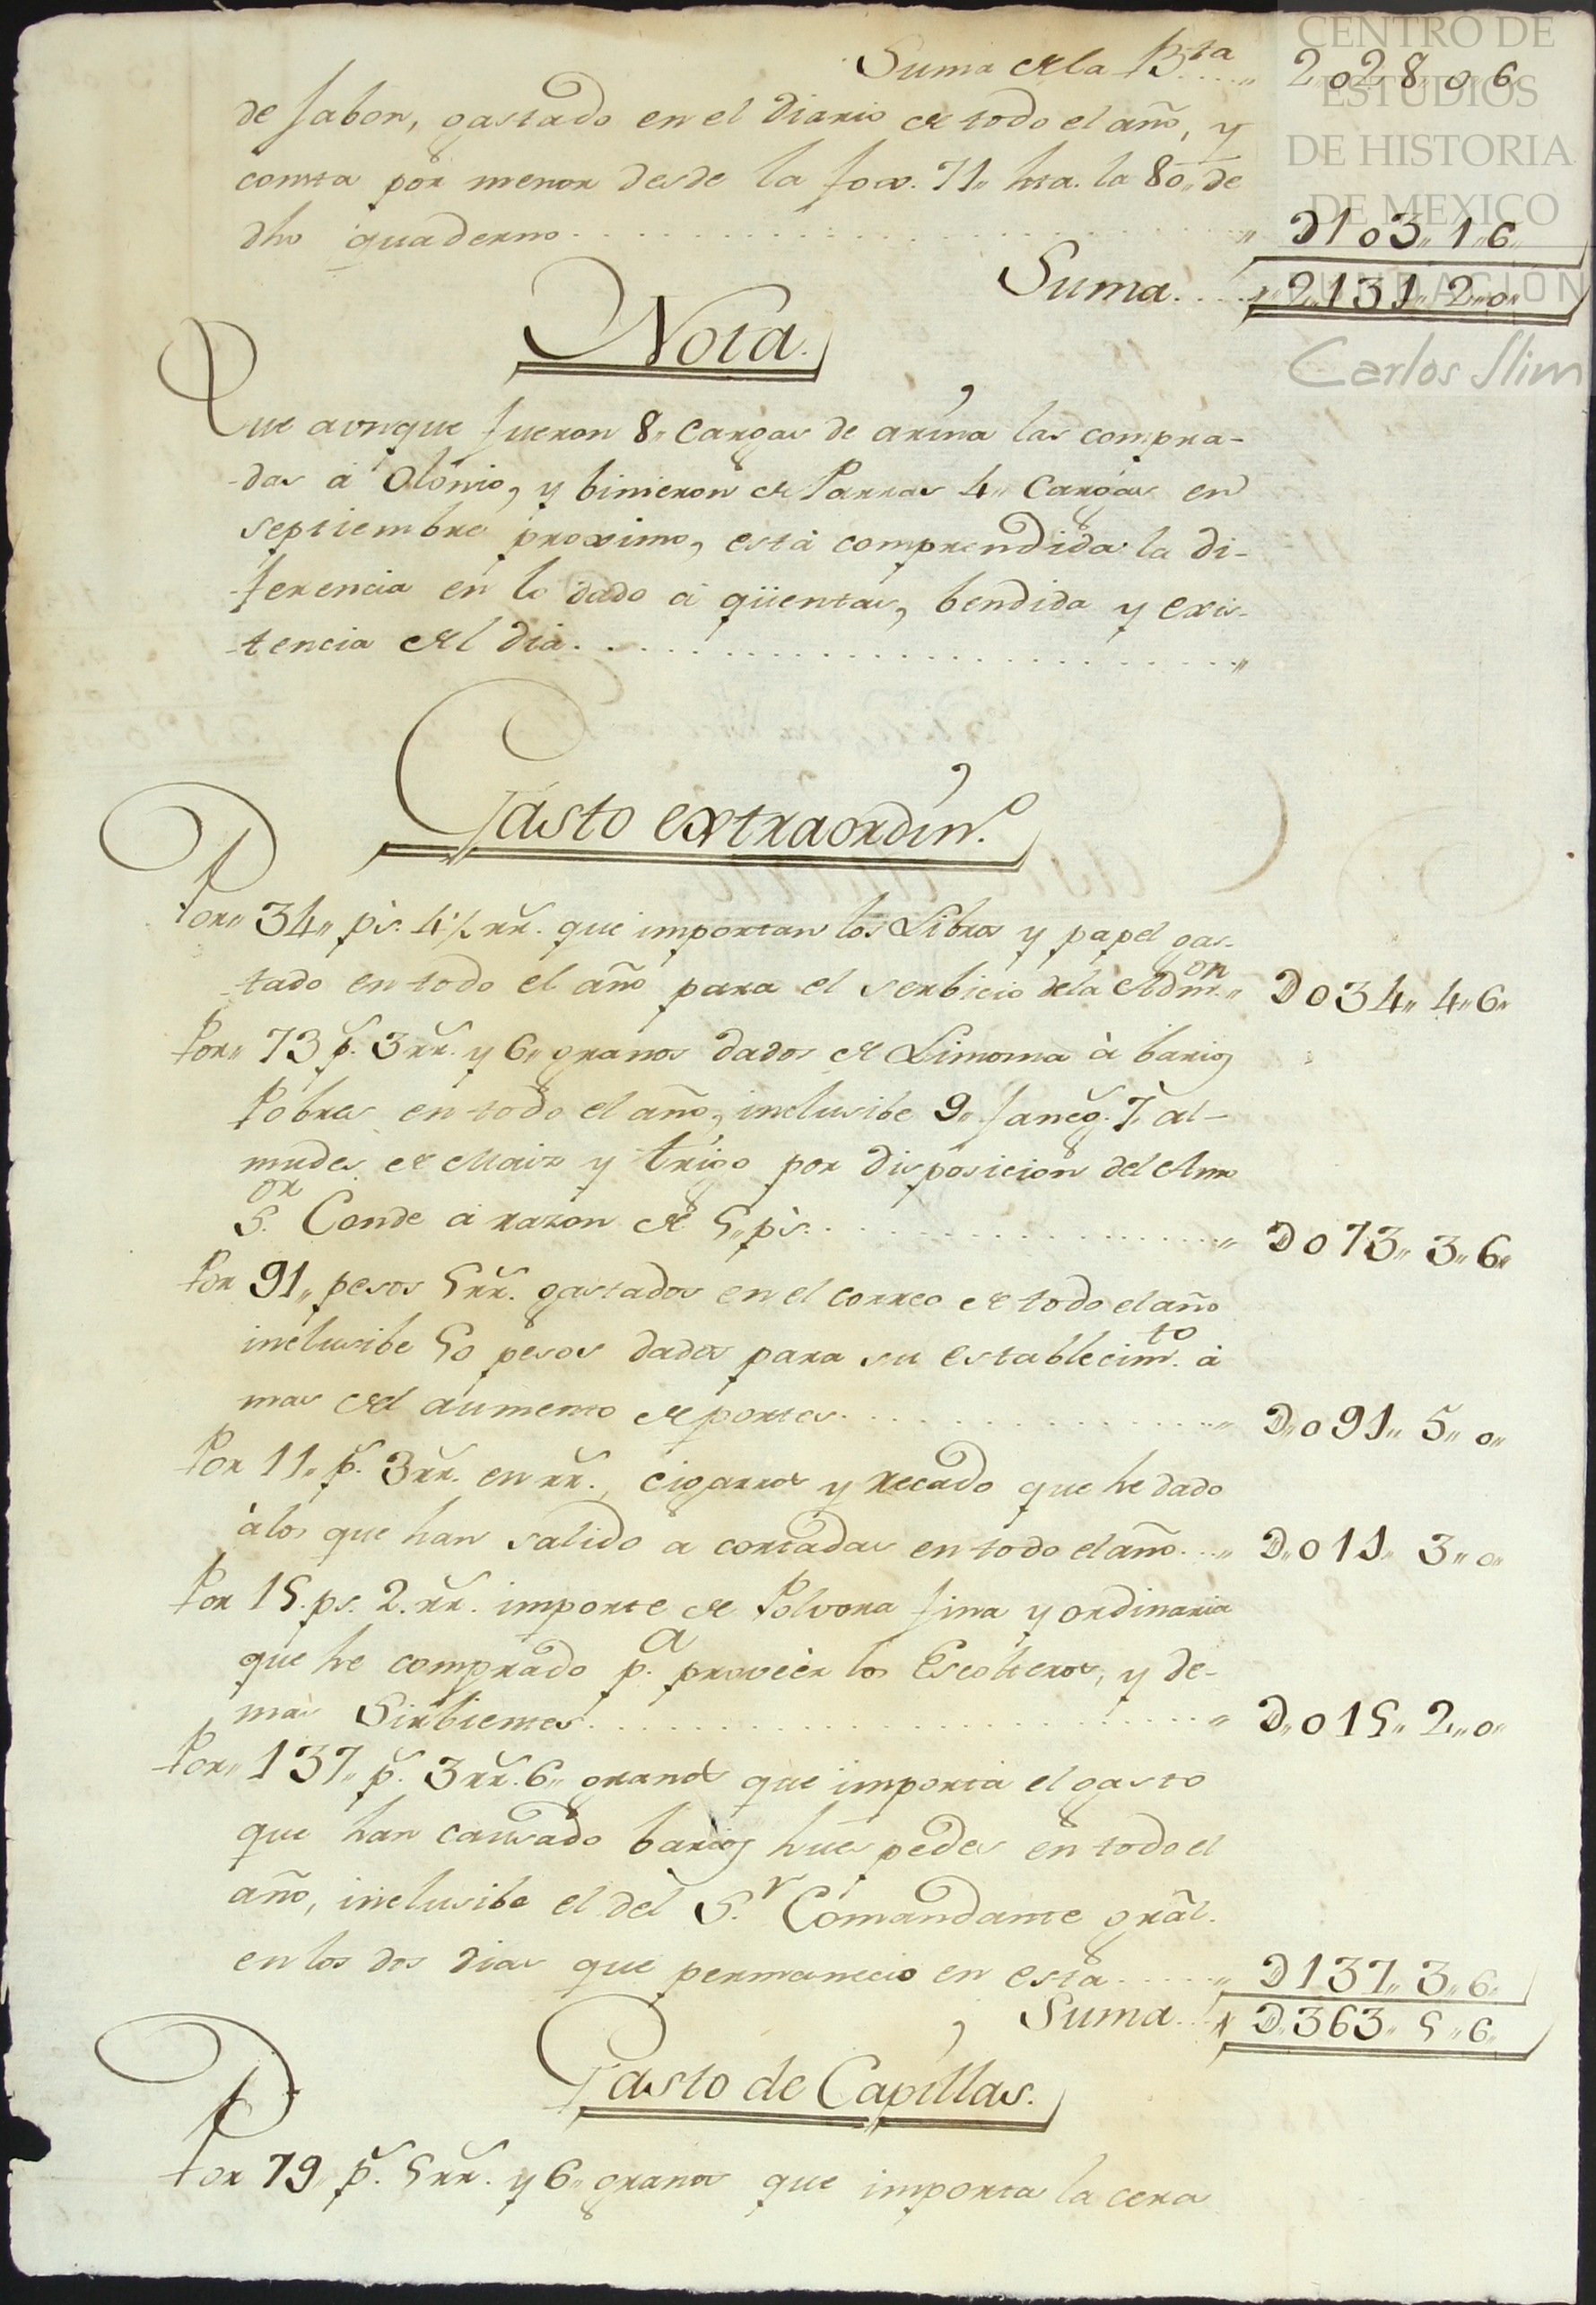 Suma de la B.ta ....,, 2,,028,,0,,6
de Jabon, gastado en el diario de todo el año, y
consta por menor desde la fox. 71,, hta. la 80,, de
dho quaderno ....,, D103,,1,,6,,
Suma....,, 2,,131,,2,,0,,
Nota.
Que aunque fueron 8,, Cargas de arina las compra-
-das á Olonio, y binieron de Parras 4,, Cargas en
septiembre proximo, está comprendida la di-
-ferencia en lo dado á qüentas, bendida y exis-
-tencia del dia.....,,
Gasto extraordin.o
Por,, 34,, ps. 4½ rr. que importan los Libros y papel gas-
-tado en todo el año para el serbicio de la Adm.on ,, D034,,4,,6,,
Por,, 73 p. 3 rr. y 6,, granos dados de Limosna à barios
Pobres en todo el año, inclusibe 9,, faneg. 7,, al-
mudes de Maiz y trigo por disposicion del Amo
S.or Conde á razon de 5,, ps.....,, D073,,3,,6,,
Por 91,, pesos 5 rr. gastados en el correo de todo el año
inclusibe 50 pesos dados para su establecim.to á
mas del aumento de portes.....,, D,,091,,5,,0,,
Por 11,, p. 3 rr. en rr., cigarros y recado que he dado
à los que han salido a cortadas en todo el año....,, D,,011,,3,,0,,
Por 15. ps. 2. rr. importe de Polvora fina y ordinaria
que he comprado p.a proveèr los Escolteros, y de-
mas Sirbientes.....,, D,,015,,2,,0,,
Por,, 137,, p. 3 rr. 6,, granos que importa el gasto
que han causado barios huespedes en todo el
año, inclusibe el del S.r Comandante gral.
en los dos dias que permanecio en esta.....,, D137,,3,,6,,
Suma...,, D,,363,,5,,6,,
Gasto de Capillas.
Por 79,, p. 5 rr. y 6,, granos que importa la cera
CENTRO DE
ESTUDIOS
DE HISTORIA
DE MEXICO
FUNDACIÓN
Carlos Slim